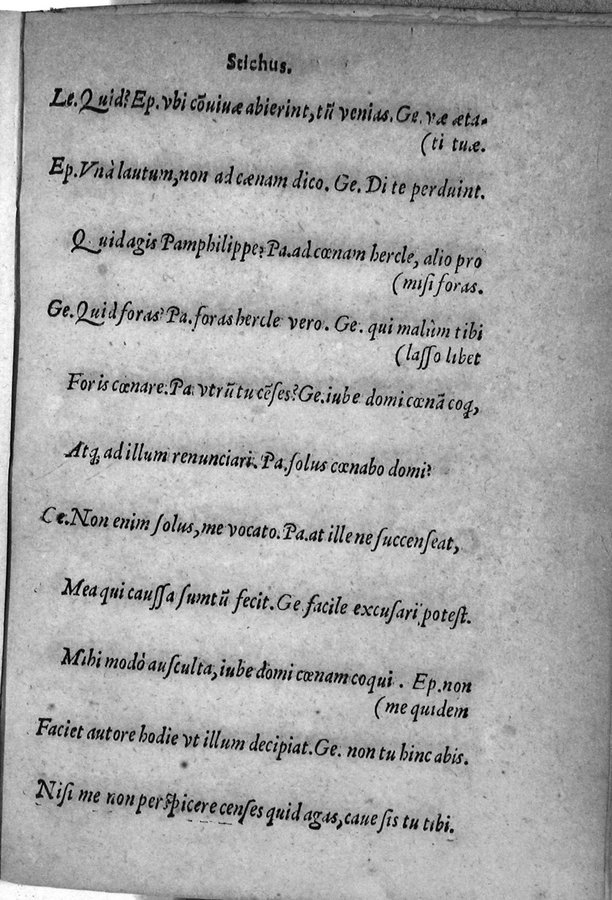 Stichus.
Le. Quid? Ep. vbi cõuiuæ abierint, tũ venias. Ge. væ æta-
(ti tuæ.
Ep. Vnà lautum, non ad cænam dico. Ge. Di te perduint.
Quid agis Pamphilippe? Pa. ad cœnam hercle, alio pro
(misi foras.
Ge. Quid foras? Pa. foras hercle vero. Ge. qui malùm tibi
(lasso libet
Foris cœnare. Pa. vtrũ tu cẽses? Ge. iube domi cœnã coq,
Atq; ad illum renunciari. Pa. solus cœnabo domi?
Ce. Non enim solus, me vocato. Pa. at ille ne succenseat,
Mea qui caussa sumtũ fecit. Ge facile excusari potest.
Mihi modò ausculta, iube domi cœnam coqui. Ep. non
(me quidem
Faciet autore hodie vt illum decipiat. Ge. non tu hinc abis.
Nisi me non perspicere censes quid agas, caue sis tu tibi.